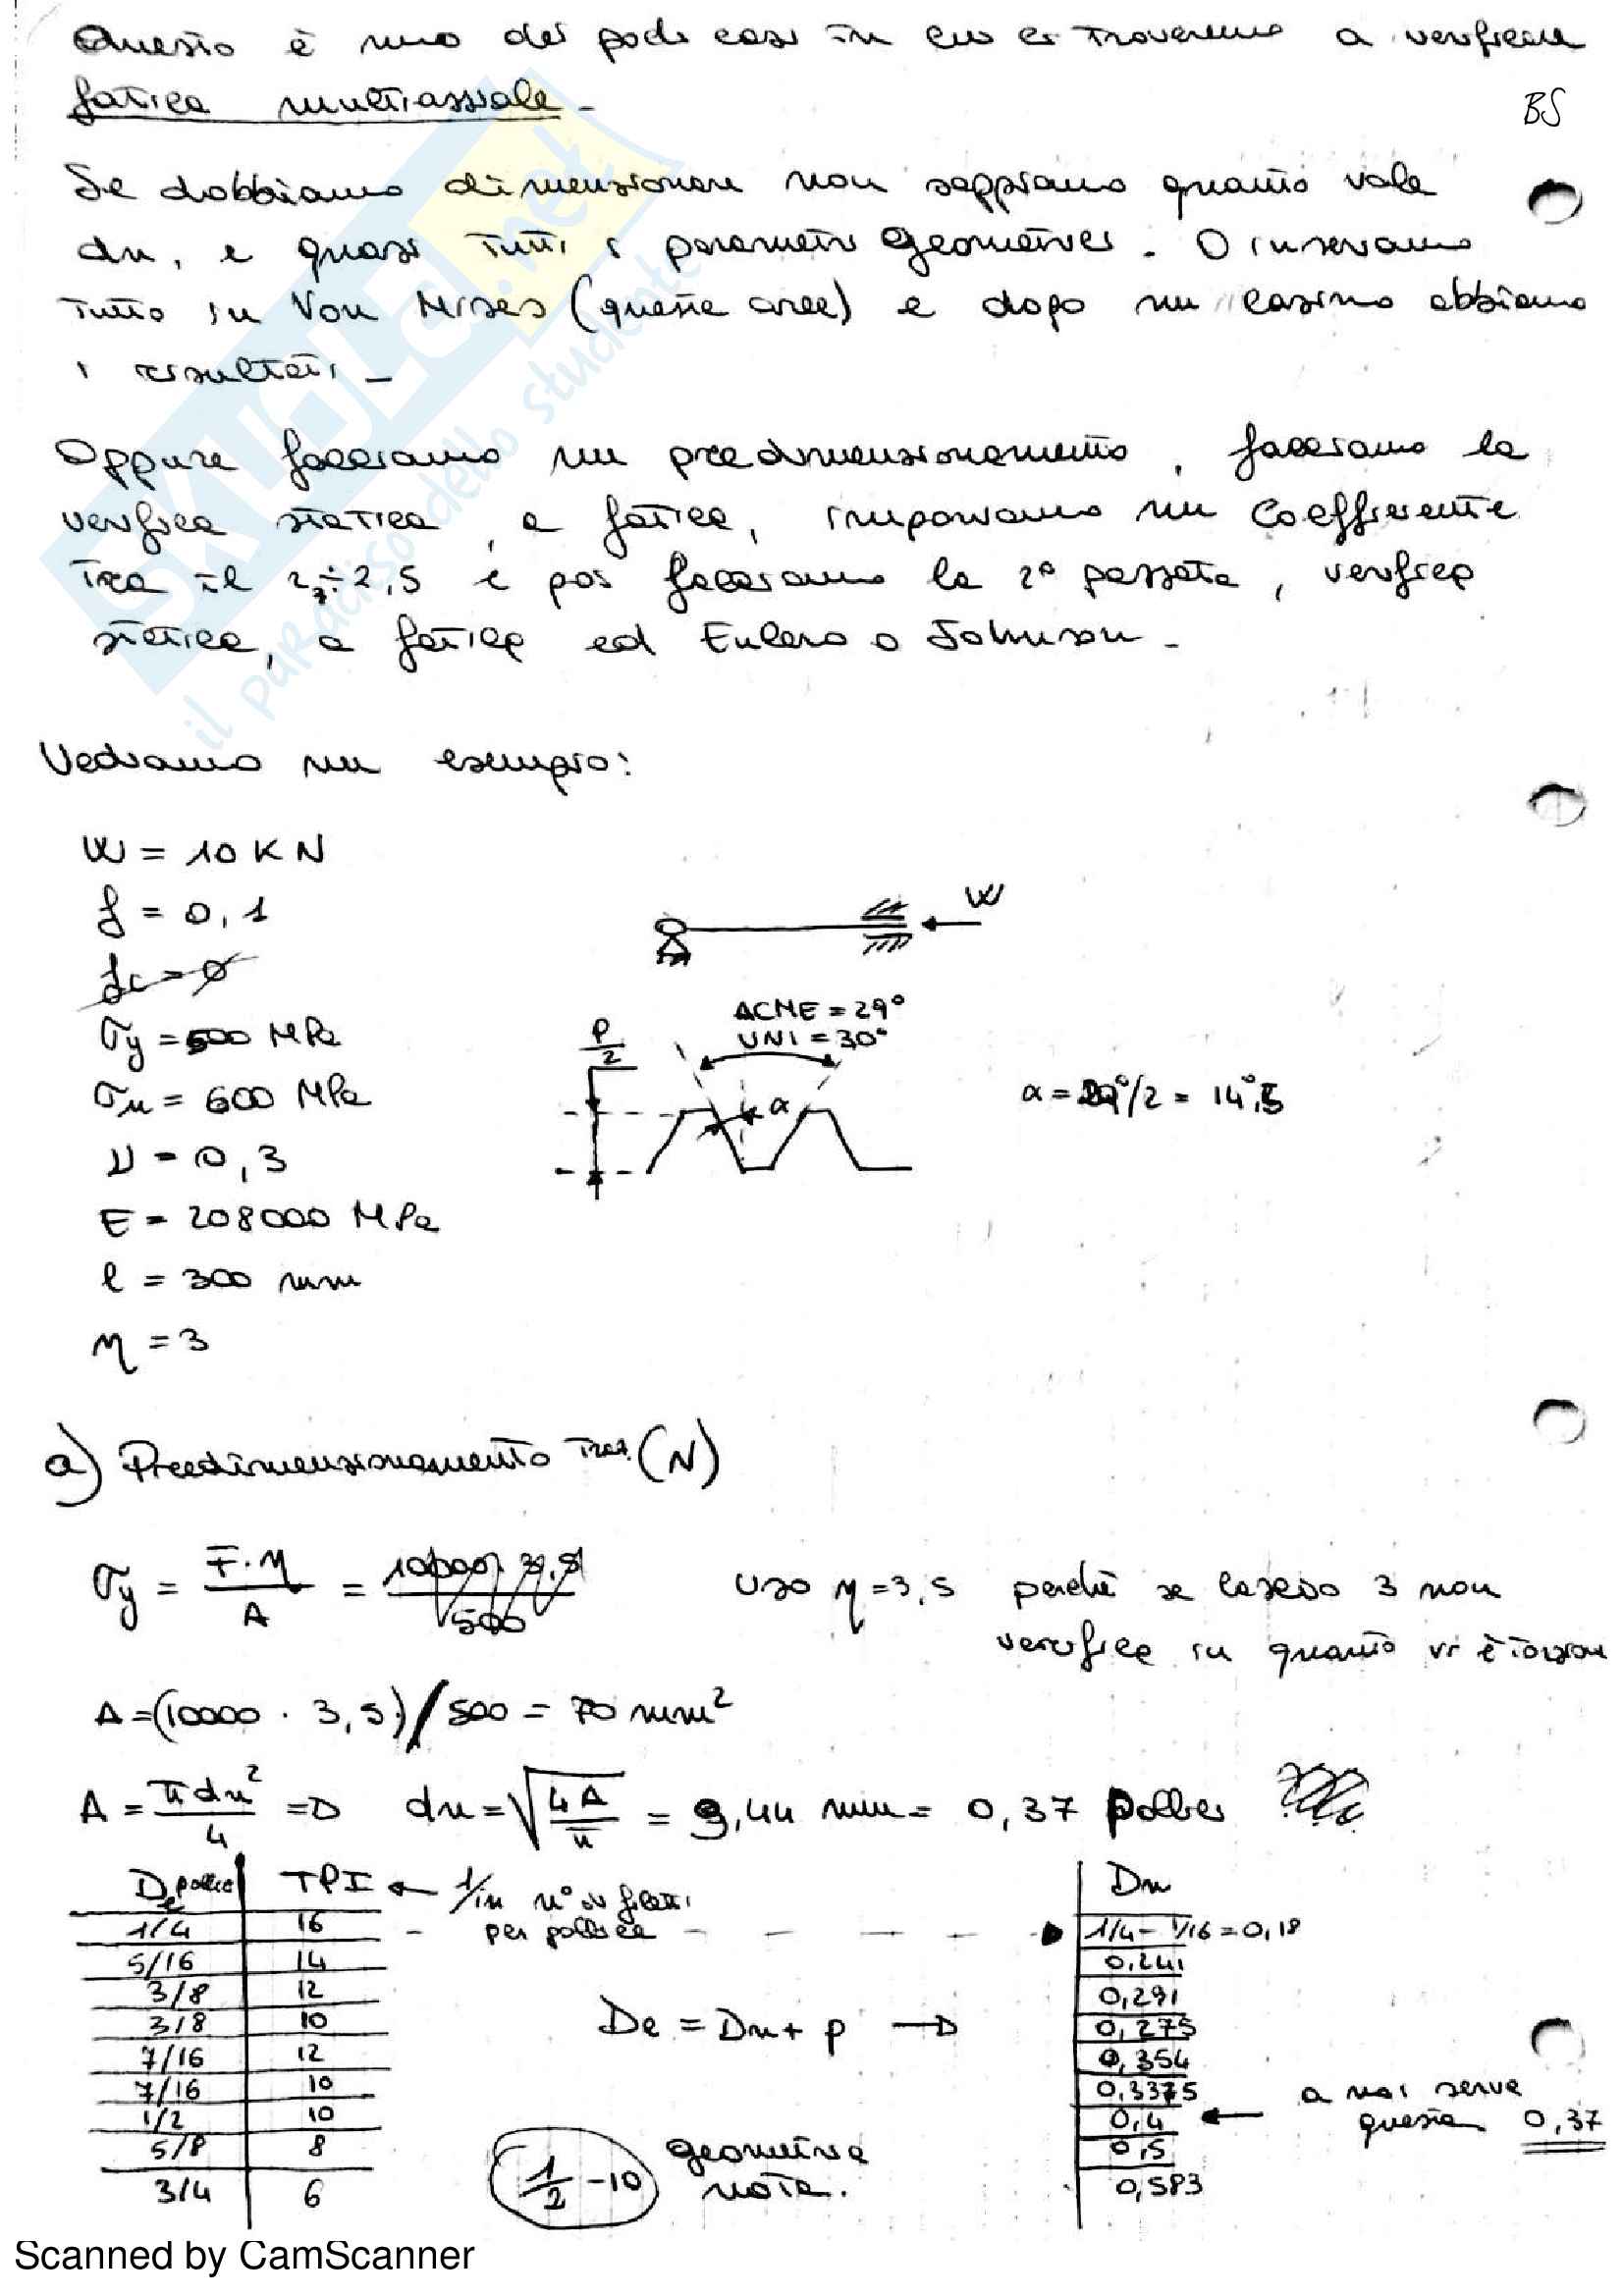 Questo è uno dei pochi casi in cui ci troveremo a verificare
fatica multiassiale -
BS
Se dobbiamo dimensionare non sappiamo quanto vale
dn, e quasi tutti i parametri geometrici. O inseriamo
tutto in Von Mises (queste aree) e dopo un casino abbiamo
i risultati -
Oppure facciamo un predimensionamento, facciamo la
verifica statica, a fatica, imponiamo un coefficiente
tra il 2 ÷ 2,5 e poi facciamo la 2ª passata, verifica
statica, a fatica ed Eulero o Johnson -
SKUOLA.net
il paradiso dello studente
Vediamo un esempio:
W = 10 KN
f = 0,1
fc = 0
σy = 500 MPa
σu = 600 MPa
ν = 0,3
E = 208000 MPa
l = 300 mm
η = 3
W
ACME = 29°
UNI = 30°
P/2
α
α = 29°/2 = 14°,5
a) Predimensionamento traz. (N)
σy = F·η / A = 10000·3,5 / 500
Uso η = 3,5 perché se lascio 3 non
verifica in quanto vi è torsione
A = (10000 · 3,5) / 500 = 70 mm²
A = π dn² / 4 => dn = √(4A/π) = 9,44 mm = 0,37 pollici
De pollici | TPI ← 1/in n° di filetti per pollice | Dn
1/4 | 16 | 1/4 - 1/16 = 0,18
5/16 | 14 | 0,241
3/8 | 12 | 0,291
3/8 | 10 | 0,275
7/16 | 12 | 0,354
7/16 | 10 | 0,3375
1/2 | 10 | 0,4 ← a noi serve questa 0,37
5/8 | 8 | 0,5
3/4 | 6 | 0,583
De = Dn + p →
1/2 - 10 geometria nota.
Scanned by CamScanner